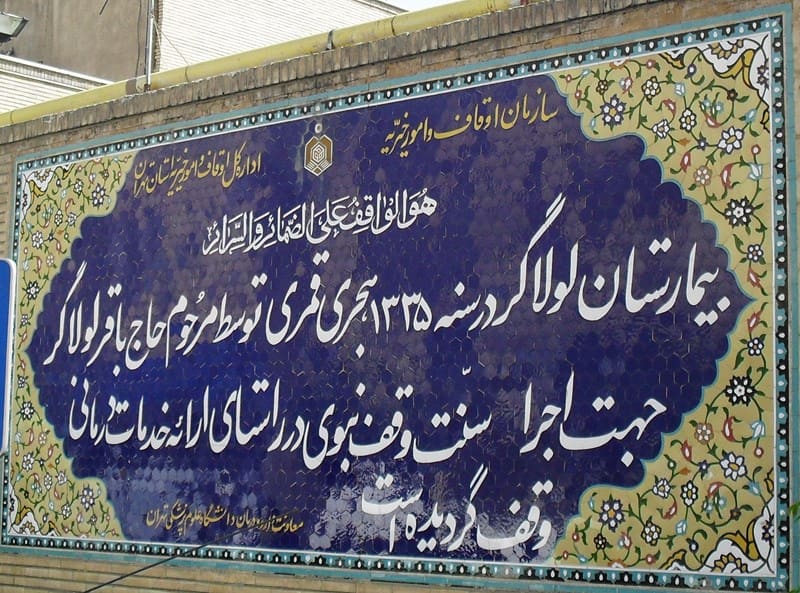 سازمان اوقاف و امور خیریه
اداره کل اوقاف و امور خیریه استان تهران
هُوَ الواقِفُ عَلَی الضَّمائِرِ وَ السَّرائِرِ
بیمارستان لولاگر در سنه ۱۳۳۵ هجری قمری توسط مرحوم حاج باقر لولاگر
جهت اجرا سنّت وقف نبوی در راستای ارائه خدمات درمانی
وقف گردیده است
معاونت درمان دانشگاه علوم پزشکی تهران